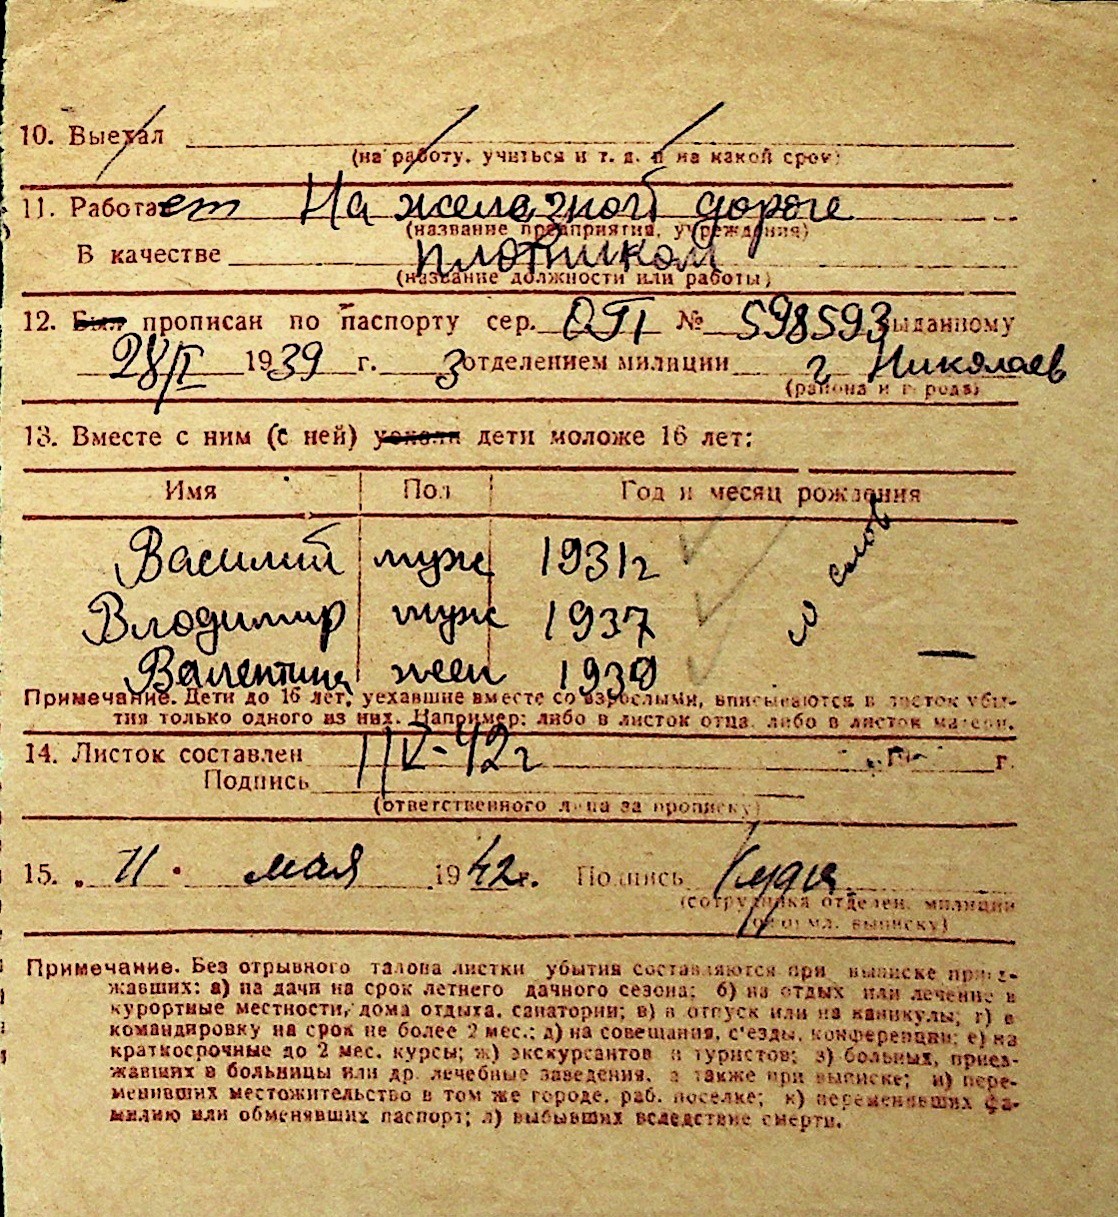 10. Выехал
(на работу, учиться и т. д. и на какой срок)
11. Работает На железной дороге
(название предприятия, учреждения)
В качестве плотником
(название должности или работы)
12. Был прописан по паспорту сер. № 598593 выданному
1939 г. 3 отделением милиции г Николаев
(района и города)
13. Вместе с ним (с ней) уехали дети моложе 16 лет:
Имя Пол Год и месяц рождения
Василий муж 1931г
Владимир муж 1937
Валентина жен
со слов
Примечание. Дети до 16 лет, уехавшие вместе со взрослыми, вписываются в листок убы-
тия только одного из них. Например: либо в листок отца, либо в листок матери.
14. Листок составлен г.
Подпись
(ответственного лица за прописку)
15. „11" мая 1942 г. Подпись
(сотрудника отделен. милиции
оформл. выписку)
Примечание. Без отрывного талона листки убытия составляются при выписке приез-
жавших: а) на дачи на срок летнего дачного сезона; б) на отдых или лечение в
курортные местности, дома отдыха, санатории; в) в отпуск или на каникулы; г) в
командировку на срок не более 2 мес.; д) на совещания, с'езды, конференции; е) на
краткосрочные до 2 мес. курсы; ж) экскурсантов и туристов; з) больных, приез-
жавших в больницы или др. лечебные заведения, а также при выписке; и) пере-
менивших местожительство в том же городе, раб. поселке; к) переменивших фа-
милию или обменявших паспорт; л) выбывших вследствие смерти.